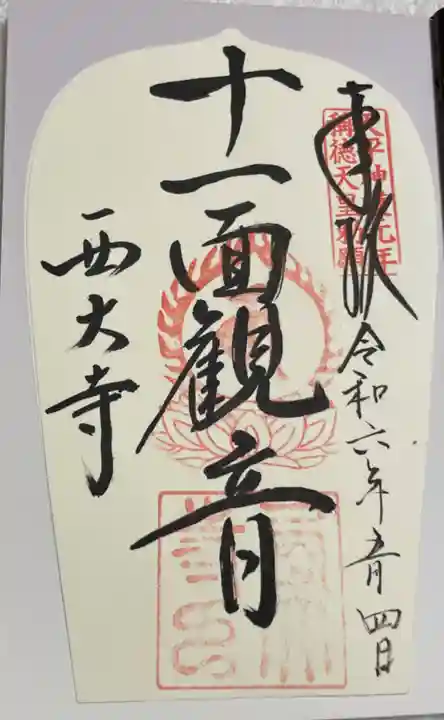 奉拝
天平神護元年
称徳天皇勅願
令和六年五月四日
十一面観音
西大寺